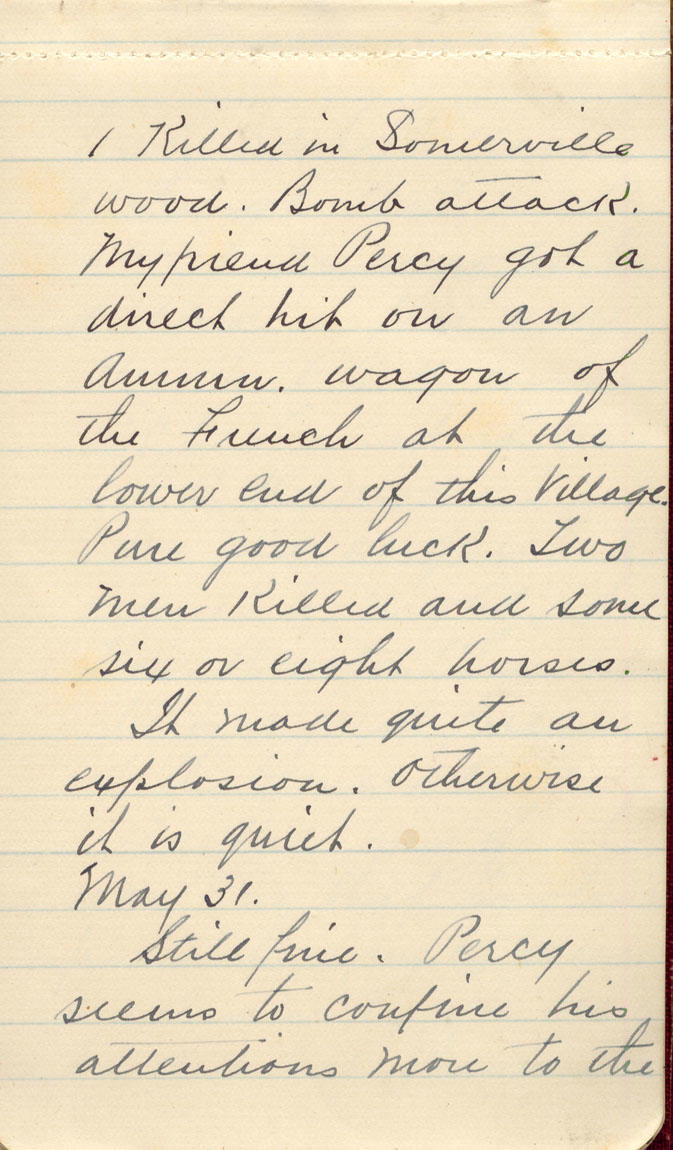 1 Killed in Somerville
wood. Bomb attack.
My friend Percy got a
direct hit on an
Ammn. wagon of
the French at the
lower end of this Village.
Pure good luck. Two
men killed and some
six or eight horses.
It made quite an
explosion. Otherwise
it is quiet.
May 31.
Still fine. Percy
seems to confine his
attentions more to the